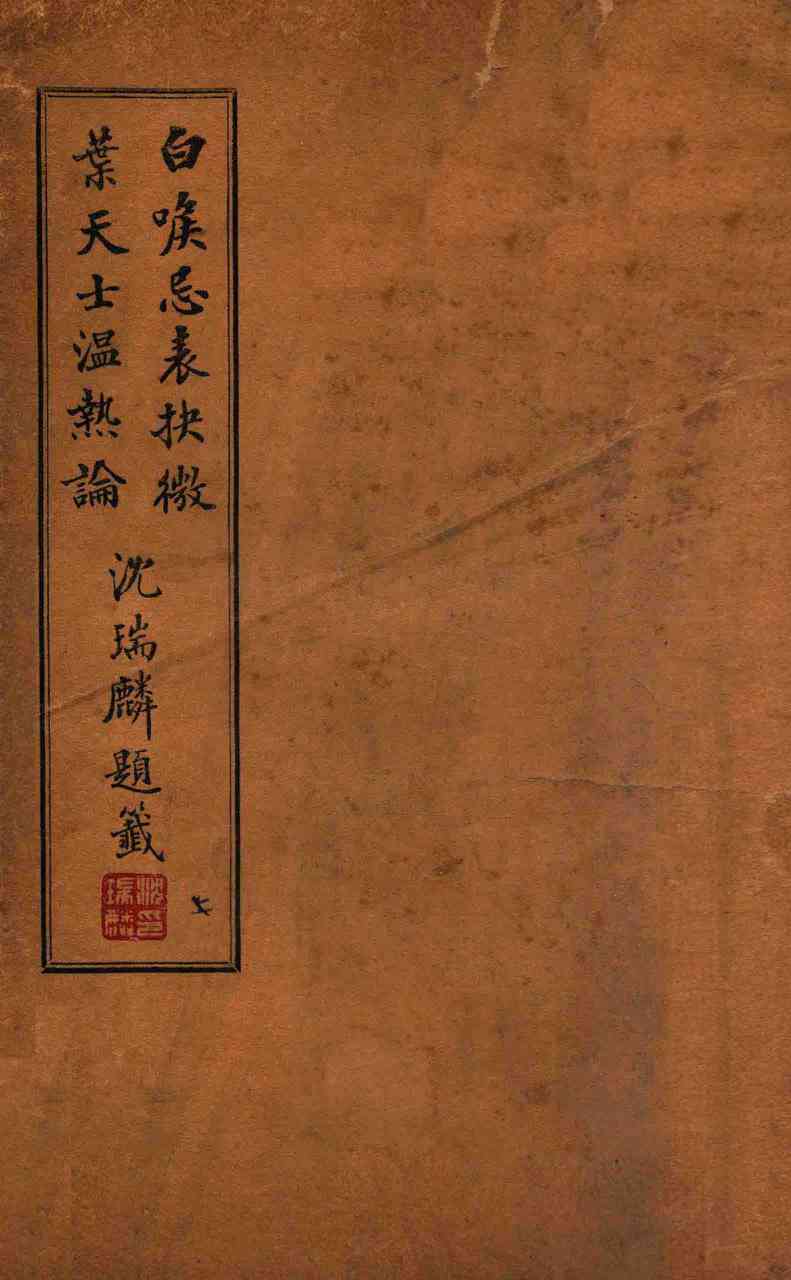 白喉忌表抉微
葉天士温熱論
沈瑞麟題籤
沈瑞麟印